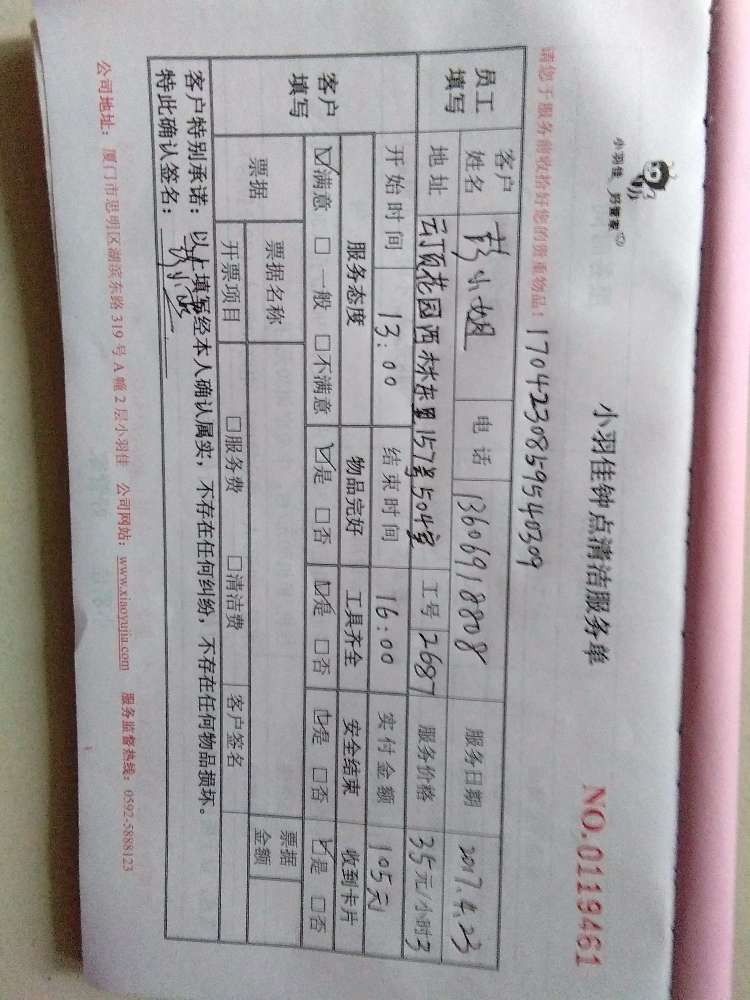 小羽佳 好管家
小羽佳钟点清洁服务单
NO.0119461
请您于服务前收拾好您的贵重物品！ 1704230859540309
员工填写 客户姓名 彭小姐 电话 13606918808 服务日期 2017.4.23
地址 云顶花园西林东里157号504室 工号 2687 服务价格 35元/小时 3
开始时间 13:00 结束时间 16:00 实付金额 105元
客户填写 服务态度 物品完好 工具齐全 安全结束 收到卡片
☑满意 □一般 □不满意 ☑是 □否 ☑是 □否 ☑是 □否 ☑是 □否
票据 票据名称 票据金额
开票项目 □服务费 □清洁费 客户签名
客户特别承诺：以上填写经本人确认属实，不存在任何纠纷，不存在任何物品损坏。
特此确认签名：
公司地址：厦门市思明区湖滨东路 319 号 A 幢 2 层小羽佳 公司网站：www.xiaoyujia.com 服务监督热线：0592-5888123